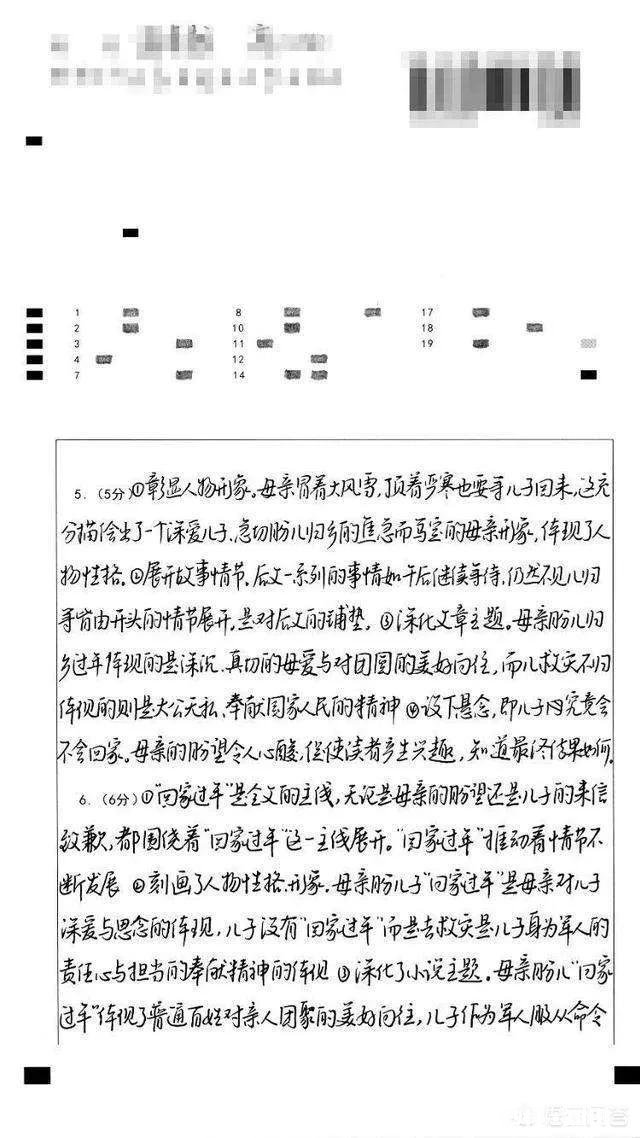 1 8 17
2 10 18
3 11 19
4 12
7 14
5.(5分)①彰显人物形象。母亲冒着大风雪,顶着严寒也要等儿子回来,这充
分描绘出了一个深爱儿子、急切盼儿归乡的焦急而写实的母亲形象,体现了人
物性格。②展开故事情节。后文一系列的事情如午后继续等待,仍然不见儿归
等皆由开头的情节展开,是对后文的铺垫。③深化文章主题。母亲盼儿归
乡过年体现的是深沉、真切的母爱与对团圆的美好向往,而儿救灾不归
体现的则是大公无私、奉献国家人民的精神④设下悬念,即儿子究竟会
不会回家。母亲的盼望令人心酸,促使读者产生兴趣,知道最终结果如何。
6.(6分)①"回家过年"是全文的主线,无论是母亲的盼望还是儿子的来信
致歉,都围绕着"回家过年"这一主线展开。"回家过年"推动着情节不
断发展②刻画了人物性格、形象。母亲盼儿子"回家过年"是母亲对儿子
深爱与思念的体现,儿子没有"回家过年"而是去救灾是儿子身为军人的
责任心与担当的奉献精神的体现③深化了小说主题。母亲盼儿"回家
过年"体现了普通百姓对亲人团聚的美好向往,儿子作为军人服从命令
悟空问答